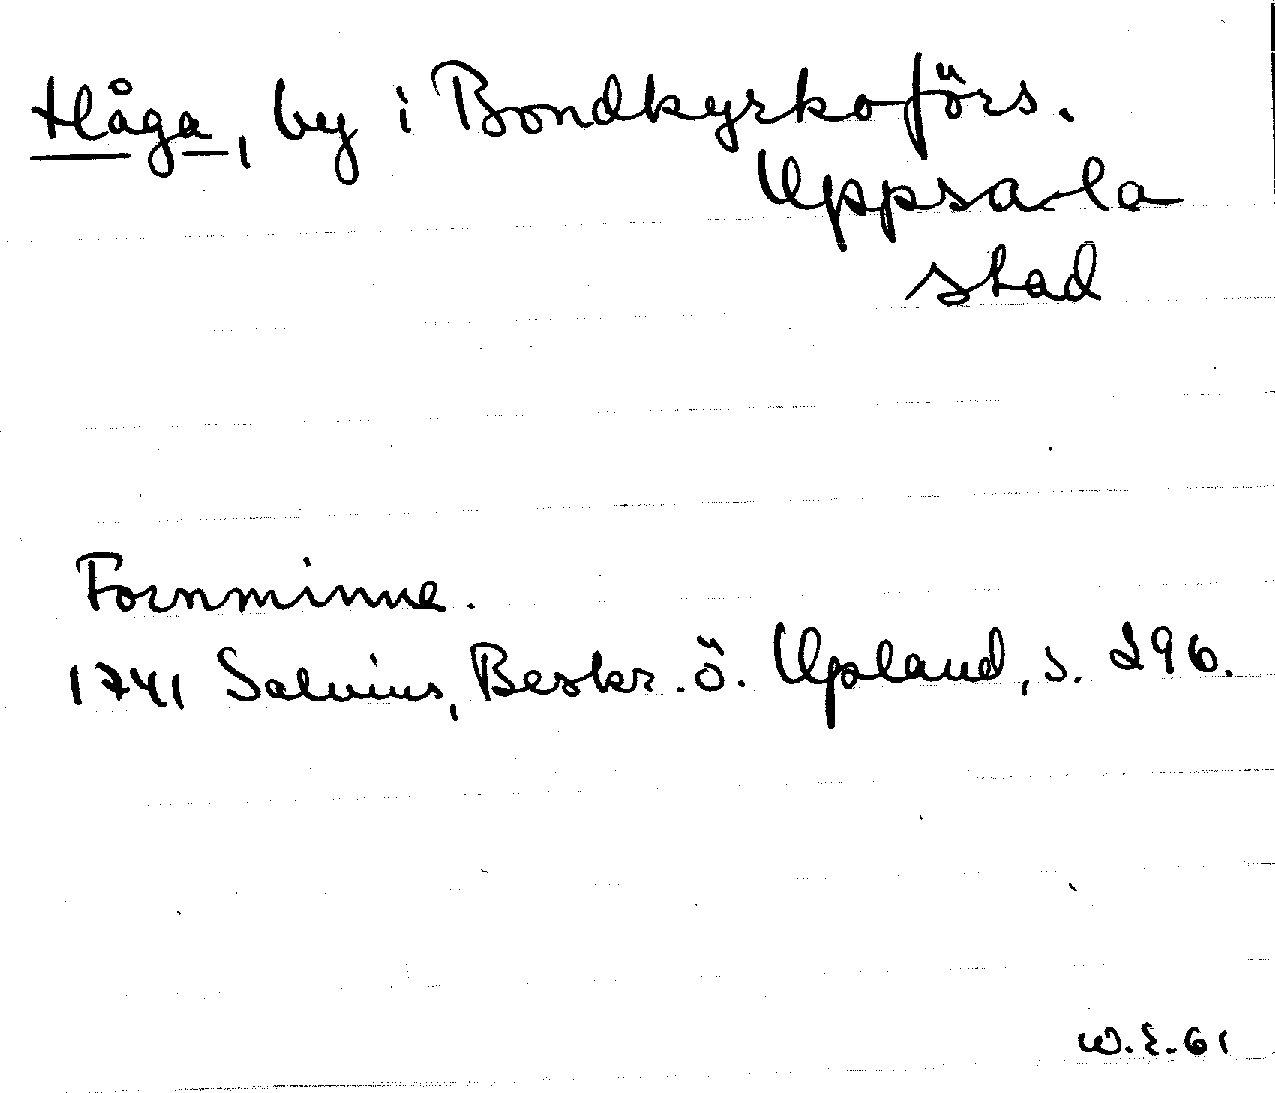 Håga, by i Bondkyrkoförs.
Uppsala
stad
Fornminne.
1741 Salvius, Beskr. ö. Upland, s. 296.
W.E. 61